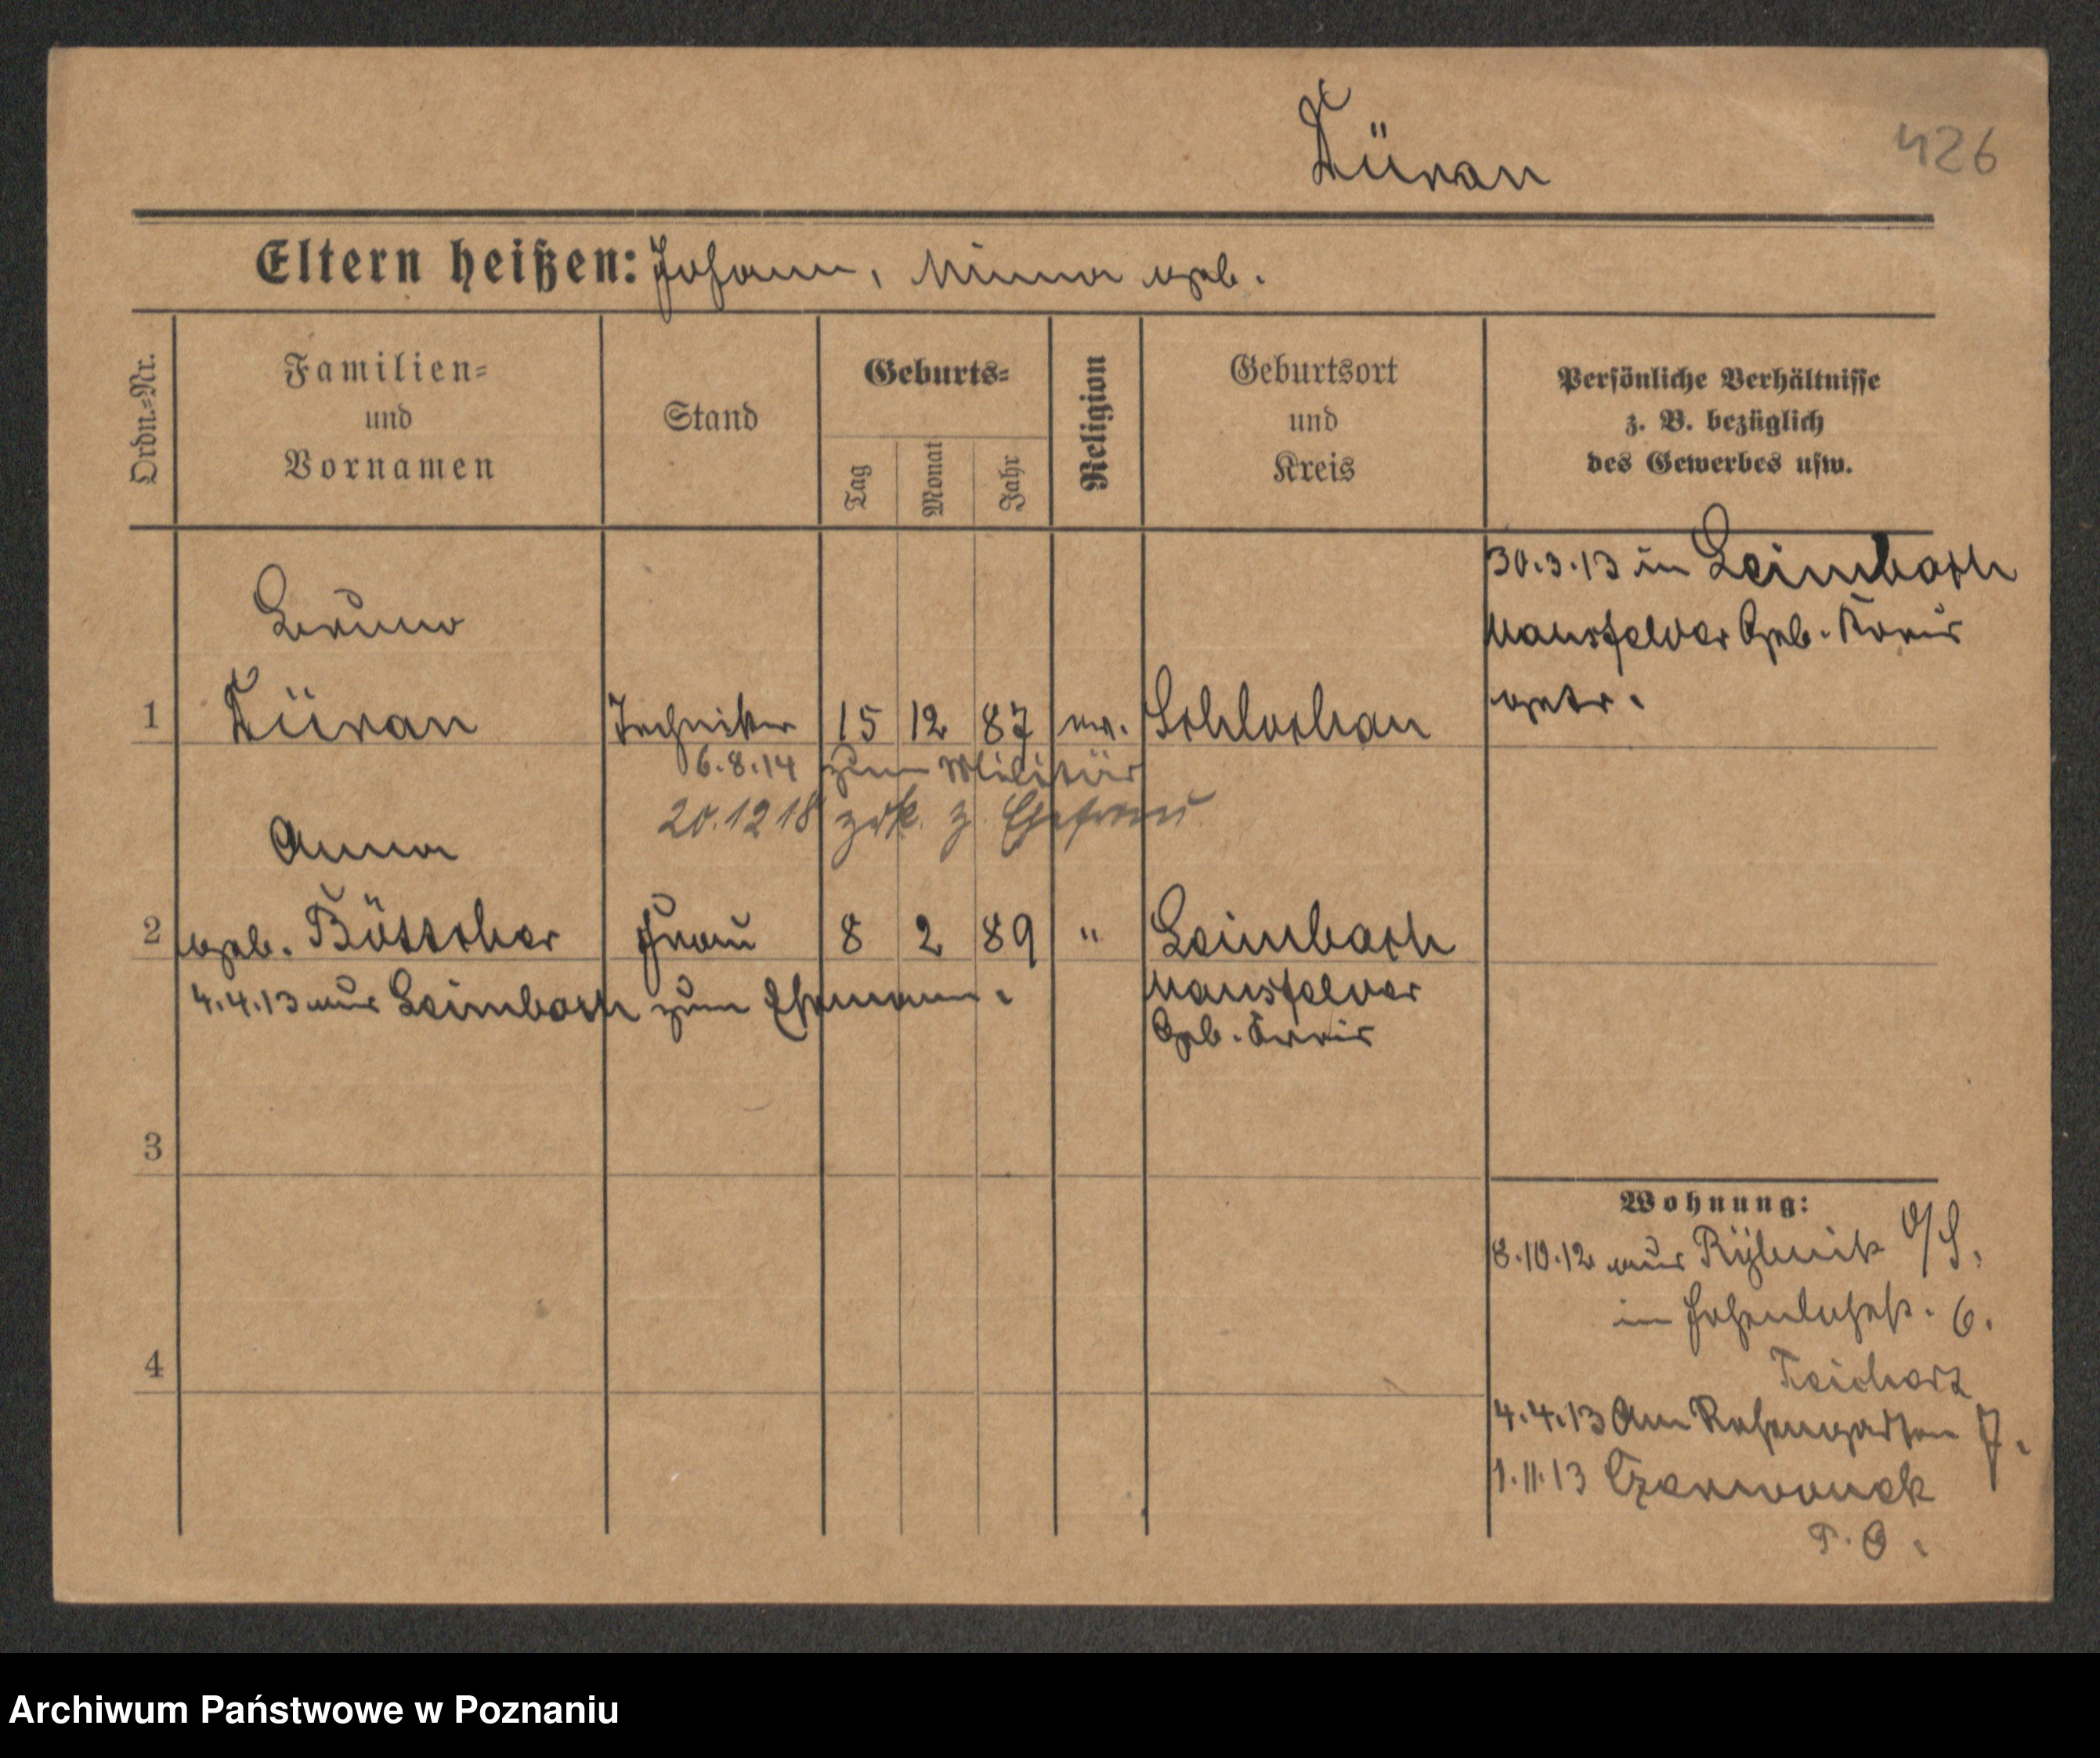 426
Düran
Eltern heißen: Johann, Minna geb.
Ordn.=Nr.
Familien=
und
Vornamen
Stand
Geburts=
Tag
Monat
Jahr
Religion
Geburtsort
und
Kreis
Persönliche Verhältnisse
z. B. bezüglich
des Gewerbes usw.
30.3.13 in Leimbach
Mansfelder Geb. Kreis
getr.
Bruno
1 Düran Techniker 15 12 87 ev. Schlochau
6.8.14 zum Militär
20.12 18 zrk. z. Ehefrau
Anna
2 geb. Böttcher Frau 8 2 89 " Leimbach
4.4.13 aus Leimbach zum Ehemann.
Mansfelder
Geb. Kreis
3
4
Wohnung:
8.10.12 aus Rybnik O/S.
in Hohenlohestr. 6.
4.4.13 Am Rosengarten 7.
1.11.13 Czerwonak
P. O.
Archiwum Państwowe w Poznaniu